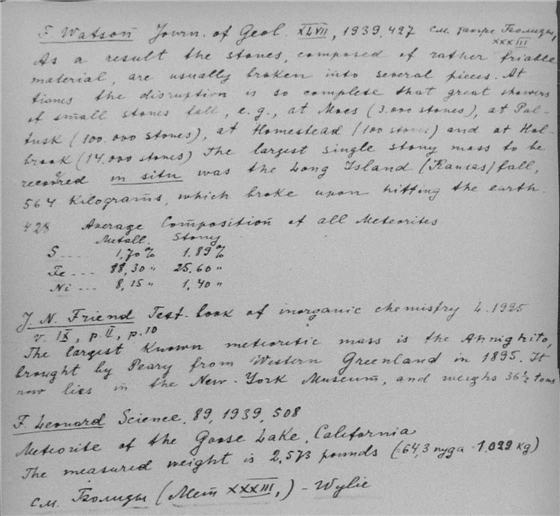 F. Watson Journ. of Geol. XLVII, 1939, 427 см. также Болиды,
XXXIII
As a result the stones, composed of rather friable
material, are usually broken into several pieces. At
times the disruption is so complete that great showers
of small stones fall, e.g., at Mocs (3.000 stones), at Pul-
tusk (100.000 stones), at Homestead (100 stones) and at Hol-
brook (14.000 stones) The largest single stony mass to be
recovered in situ was the Long Island (Kansas) fall,
564 kilograms, which broke upon hitting the earth.
428 Average Composition of all Meteorites
Metall. Stony
S ... 1,70% 1,89%
Fe ... 88,30 " 25,60 "
Ni ... 8,15 " 1,40 "
J. N. Friend Text-book of inorganic chemistry L. 1925
v. IX, p. II, p. 10
The largest known meteoritic mass is the Anighito,
brought by Peary from Western Greenland in 1895. It
now lies in the New-York Museum, and weighs 36½ tons
F. Leonard Science, 89, 1939, 508
Meteorite of the Goose Lake, California
The measured weight is 2,573 pounds (64,3 пуда - 1,022 kg)
см. Болиды (Мет XXXIII,) - Wylie